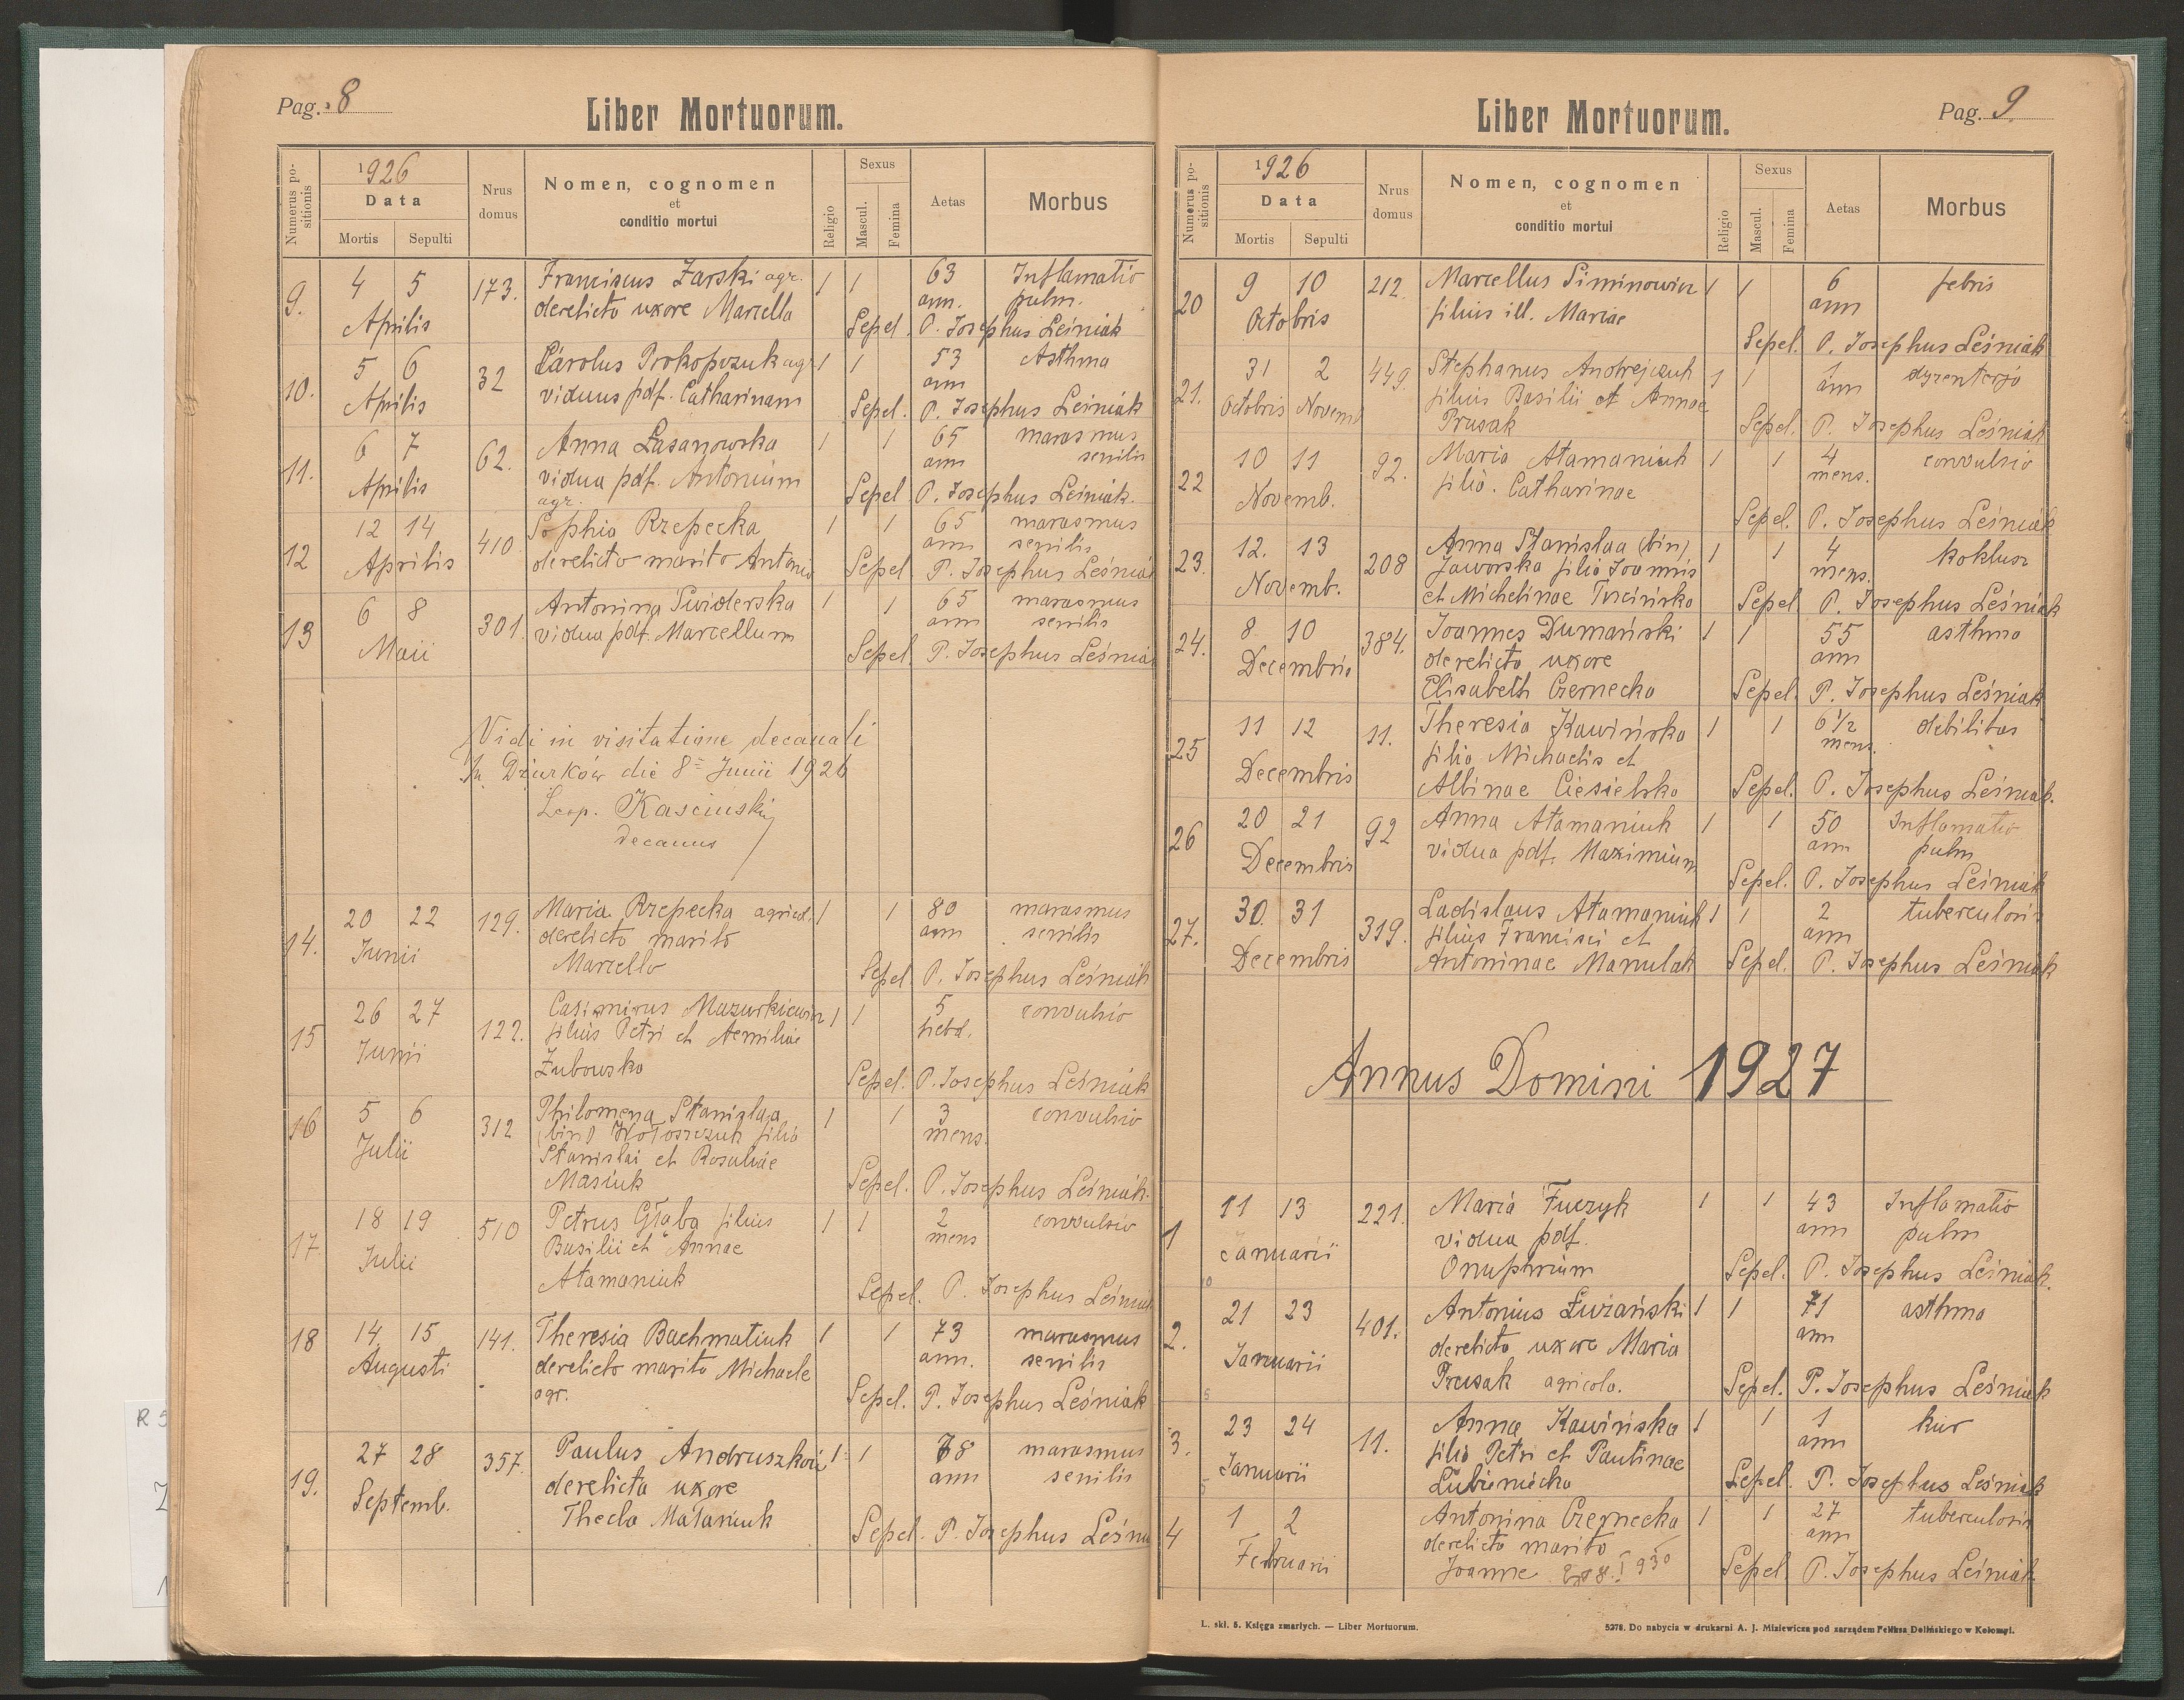 Pag. 8
Liber Mortuorum.
Numerus positionis
1926
Data
Mortis Sepulti
Nrus domus
Nomen, cognomen
et
conditio mortui
Religio
Sexus
Mascul. Femina
Aetas
Morbus
9. 4 5 173. Franciscus Zarski agr. 1 1 63 Inflamatio
Aprilis derelicto uxore Marcella ann. pulm.
Sepel. P. Josephus Leśniak
10. 5 6 32 Carolus Prokopczuk agr. 1 1 53 Asthma
Aprilis viduus pdf. Catharinam ann
Sepel. P. Josephus Leśniak
11. 6 7 62. Anna Lasanowska 1 1 65 marasmus
Aprilis vidua pdf. Antonium ann senilis
agr. Sepel P. Josephus Leśniak.
12 12 14 410 Sophia Rzepecka 1 1 65 marasmus
Aprilis derelicto marito Antonio ann senilis
Sepel. P. Josephus Leśniak
13 6 8 301. Antonina Swiderska 1 1 65 marasmus
Maii vidua pdf. Marcellum ann senilis
Sepel. P. Josephus Leśniak
Vidi in visitatione decanali
In Dżurków die 8 Junii 1926
Leop. Kasciuski
decanus
14. 20 22 129. Maria Rzepecka agricol. 1 1 80 marasmus
Junii derelicto marito ann senilis
Marcello
Sepel P. Josephus Leśniak
15 26 27 122. Casimirus Mazurkiewicz 1 1 5 convulsio
Junii filius Petri et Aemiliae hebd.
Zubowska
Sepel. P. Josephus Leśniak
16 5 6 312 Philomena Stanislaa 1 1 3 convulsio
Julii (bin) Wołoszczuk filia mens.
Stanislai et Rosaliae
Masiuk Sepel. P. Josephus Leśniak.
17. 18 19 510 Petrus Głaba filius 1 1 2 convulsio
Julii Basilii et Annae mens
Atamaniuk
Sepel. P. Josephus Leśniak
18 14 15 141. Theresia Bachmatiuk 1 1 73 marasmus
Augusti derelicto marito Michaele ann. senilis
agr. Sepel. P. Josephus Leśniak
19. 27 28 357. Paulus Andruszków 1 1 78 marasmus
Septemb. derelicta uxore ann senilis
Thecla Mataniuk
Sepel. P. Josephus Leśnia
Liber Mortuorum.
Pag. 9.
Numerus positionis
1926
Data
Mortis Sepulti
Nrus domus
Nomen, cognomen
et
conditio mortui
Religio
Sexus
Mascul. Femina
Aetas
Morbus
20 9 10 212. Marcellus Siminowicz 1 1 6 febris
Octobris filius ill. Mariae ann
Sepel. P. Josephus Leśniak
21. 31 2 449. Stephanus Andrejczuk 1 1 1 dyzenterja
Octobris Novemb filius Basilii et Annae ann
Prusak Sepel. P. Josephus Leśniak
22 10 11 92. Maria Atamaniuk 1 1 4 convulsio
Novemb. filia. Catharinae mens.
Sepel. P. Josephus Leśniak
23. 12. 13 208 Anna Stanislaa (bin) 1 1 4 koklusz
Novemb. Jaworska filia Joannis mens.
et Michelinae Turcińska Sepel P. Josephus Leśniak
24. 8 10 384. Joannes Dumański 1 1 55 asthma
Decembris derelicta uxore ann
Elisabeth Czernecka Sepel. P. Josephus Leśniak
25 11 12 11. Theresia Kawińska 1 1 6 1/2 debilitas
Decembris filia Michaelis et mens.
Albinae Ciesielska Sepel. P. Josephus Leśniak.
26 20 21 92 Anna Atamaniuk 1 1 50 Inflamatio
Decembris vidua pdf. Maximium ann pulm
Sepel. P. Josephus Leśniak
27. 30. 31 319. Ladislaus Atamaniuk 1 1 2 tuberculosis
Decembris filius Francisci et ann
Antoninae Manulak Sepel. P. Josephus Leśniak
Annus Domini 1927
1 11 13 221. Maria Fuczyk 1 1 43 Inflamatio
Januarii vidua pdf. ann pulm
Onuphrium Sepel. P. Josephus Leśniak.
2. 21 23 401. Antonius Łwżański 1 1 71 asthma
Januarii derelicto uxore Maria ann
Prusak agricola. Sepel. P. Josephus Leśniak
3. 23 24 11. Anna Kawińska 1 1 1 kur
Januarii filia Petri et Paulinae ann
Lubieniecka Sepel. P. Josephus Leśniak
4 1 2 Antonina Czernecka 1 1 27 tuberculosis
Februarii derelicto marito ann
Joanne 8. I 930 Sepel. P. Josephus Leśniak
L. skł. 5. Księga zmarłych. — Liber Mortuorum.
5278. Do nabycia w drukarni A. J. Miziewicza pod zarządem Feliksa Dolińskiego w Kołomyi.